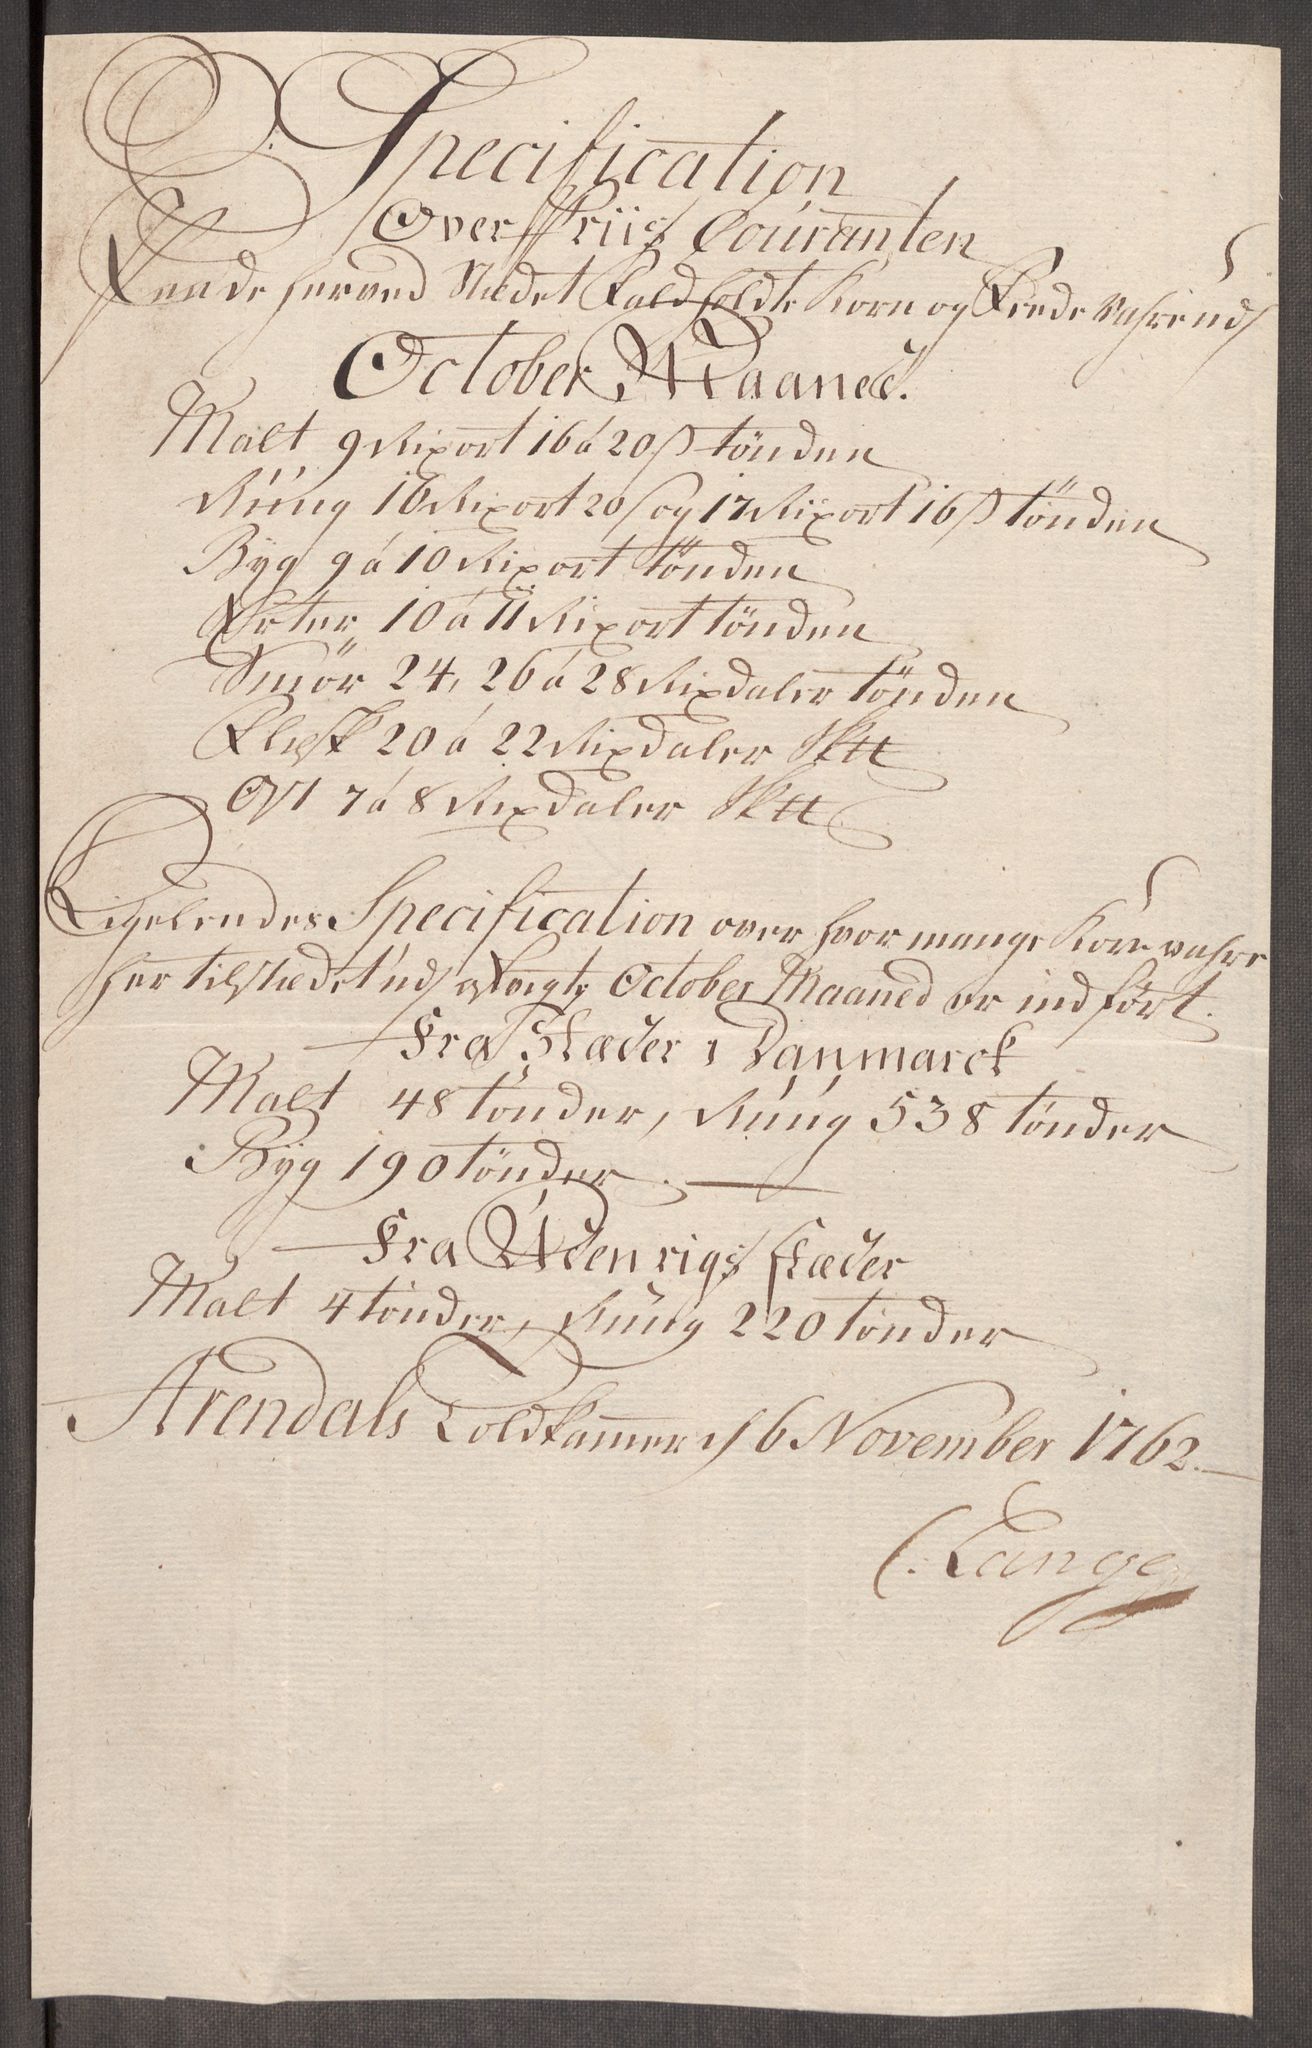 Specification
Over Priis Couranten
Paa de her ved Stædet Faldholdte Korn og Fede Vahre udj
October Maaned.
Malt 9 Rixort 16 á 20 ß tönden
Rúúg 16 Rixort 20 ß og 17 Rixort 16 ß tönden
Byg 9 á 10 Rixort tönden
Erter 10 á 11 Rixort tönden
Smör 24, 26 á 28 Rixdaler tönden
Flesk 20 á 22 Rixdaler Sk℔
Ost 7 á 8 Rixdaler Sk℔
Ligeledes Specification over hvor mange Korn vahre
her til stædet udj October Maaned er indfört.
Fra Stæder i Danmarck
Malt 48 tönder, Rúúg 538 tönder
Byg 190 tönder.
Fra Udenrigs stæder
Malt 4 tönder, Rúúg 220 tönder
Arendals Toldkammer d 6 November 1762.
C. Lange